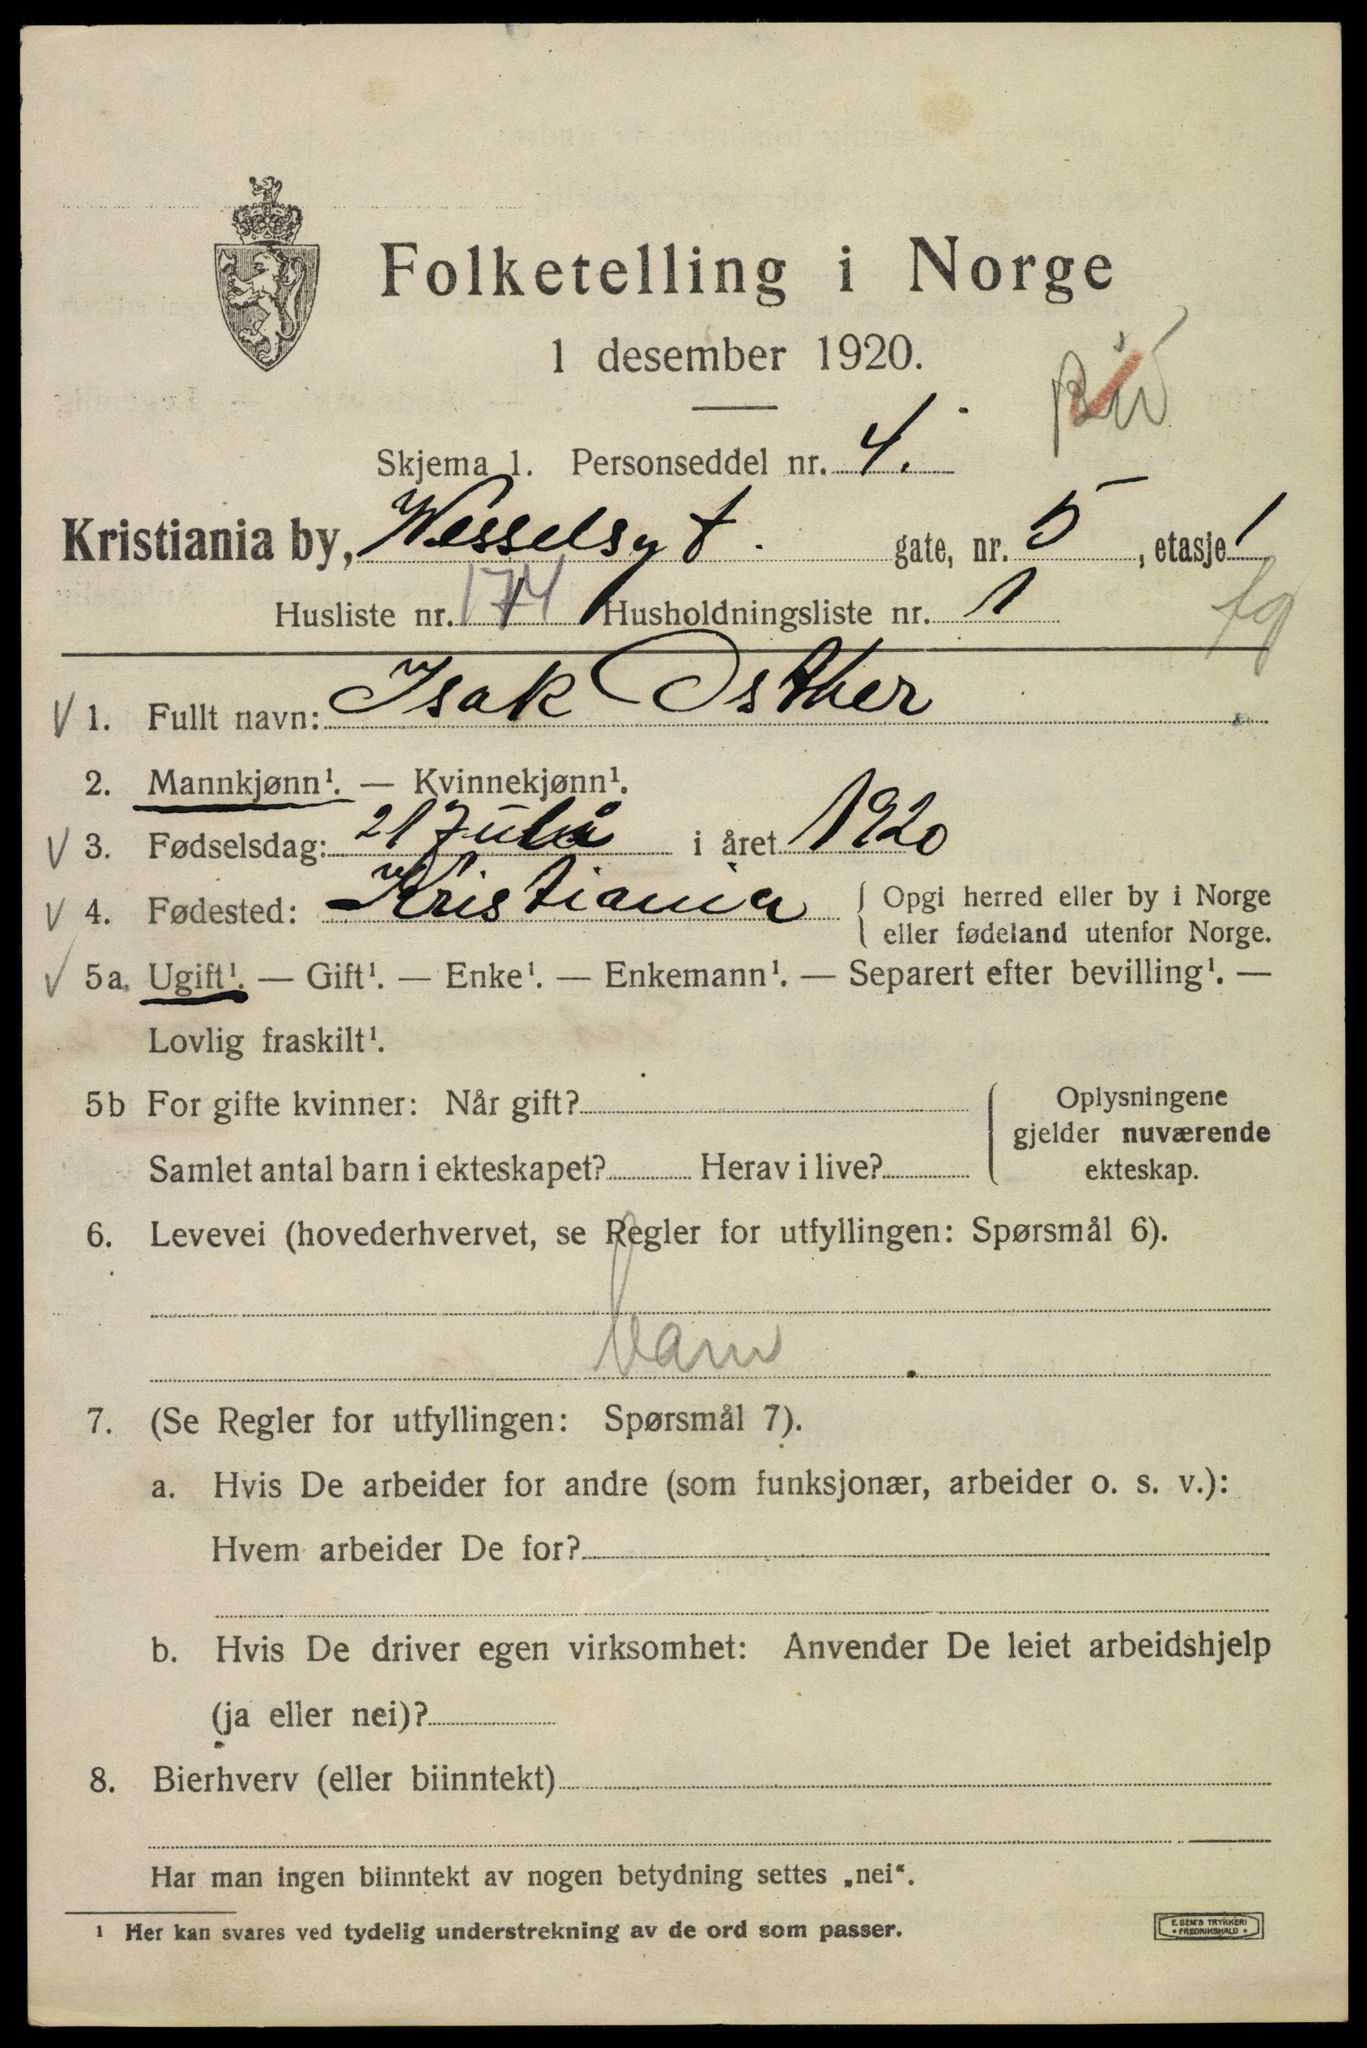 Folketelling i Norge
1 desember 1920.
Skjema 1. Personseddel nr. 4.
Kristiania by, Wesselsgt. gate, nr. 5, etasje 1
Husliste nr. 174 Husholdningsliste nr. 1
1. Fullt navn: Isak Osther
2. Mannkjønn¹. — Kvinnekjønn¹.
3. Fødselsdag: 21 Juli i året 1920
4. Fødested: Kristiania { Opgi herred eller by i Norge
eller fødeland utenfor Norge.
5a. Ugift¹. — Gift¹. — Enke¹. — Enkemann¹. — Separert efter bevilling¹. —
Lovlig fraskilt¹.
5b For gifte kvinner: Når gift? { Oplysningene
gjelder nuværende
Samlet antal barn i ekteskapet? Herav i live? ekteskap.
6. Levevei (hovederhvervet, se Regler for utfyllingen: Spørsmål 6).
barn
7. (Se Regler for utfyllingen: Spørsmål 7).
a. Hvis De arbeider for andre (som funksjonær, arbeider o. s. v.):
Hvem arbeider De for?
b. Hvis De driver egen virksomhet: Anvender De leiet arbeidshjelp
(ja eller nei)?
8. Bierhverv (eller biinntekt)
Har man ingen biinntekt av nogen betydning settes „nei“.
¹ Her kan svares ved tydelig understrekning av de ord som passer.
E. SEM'S TRYKKERI
• FREDRIKSHALD •